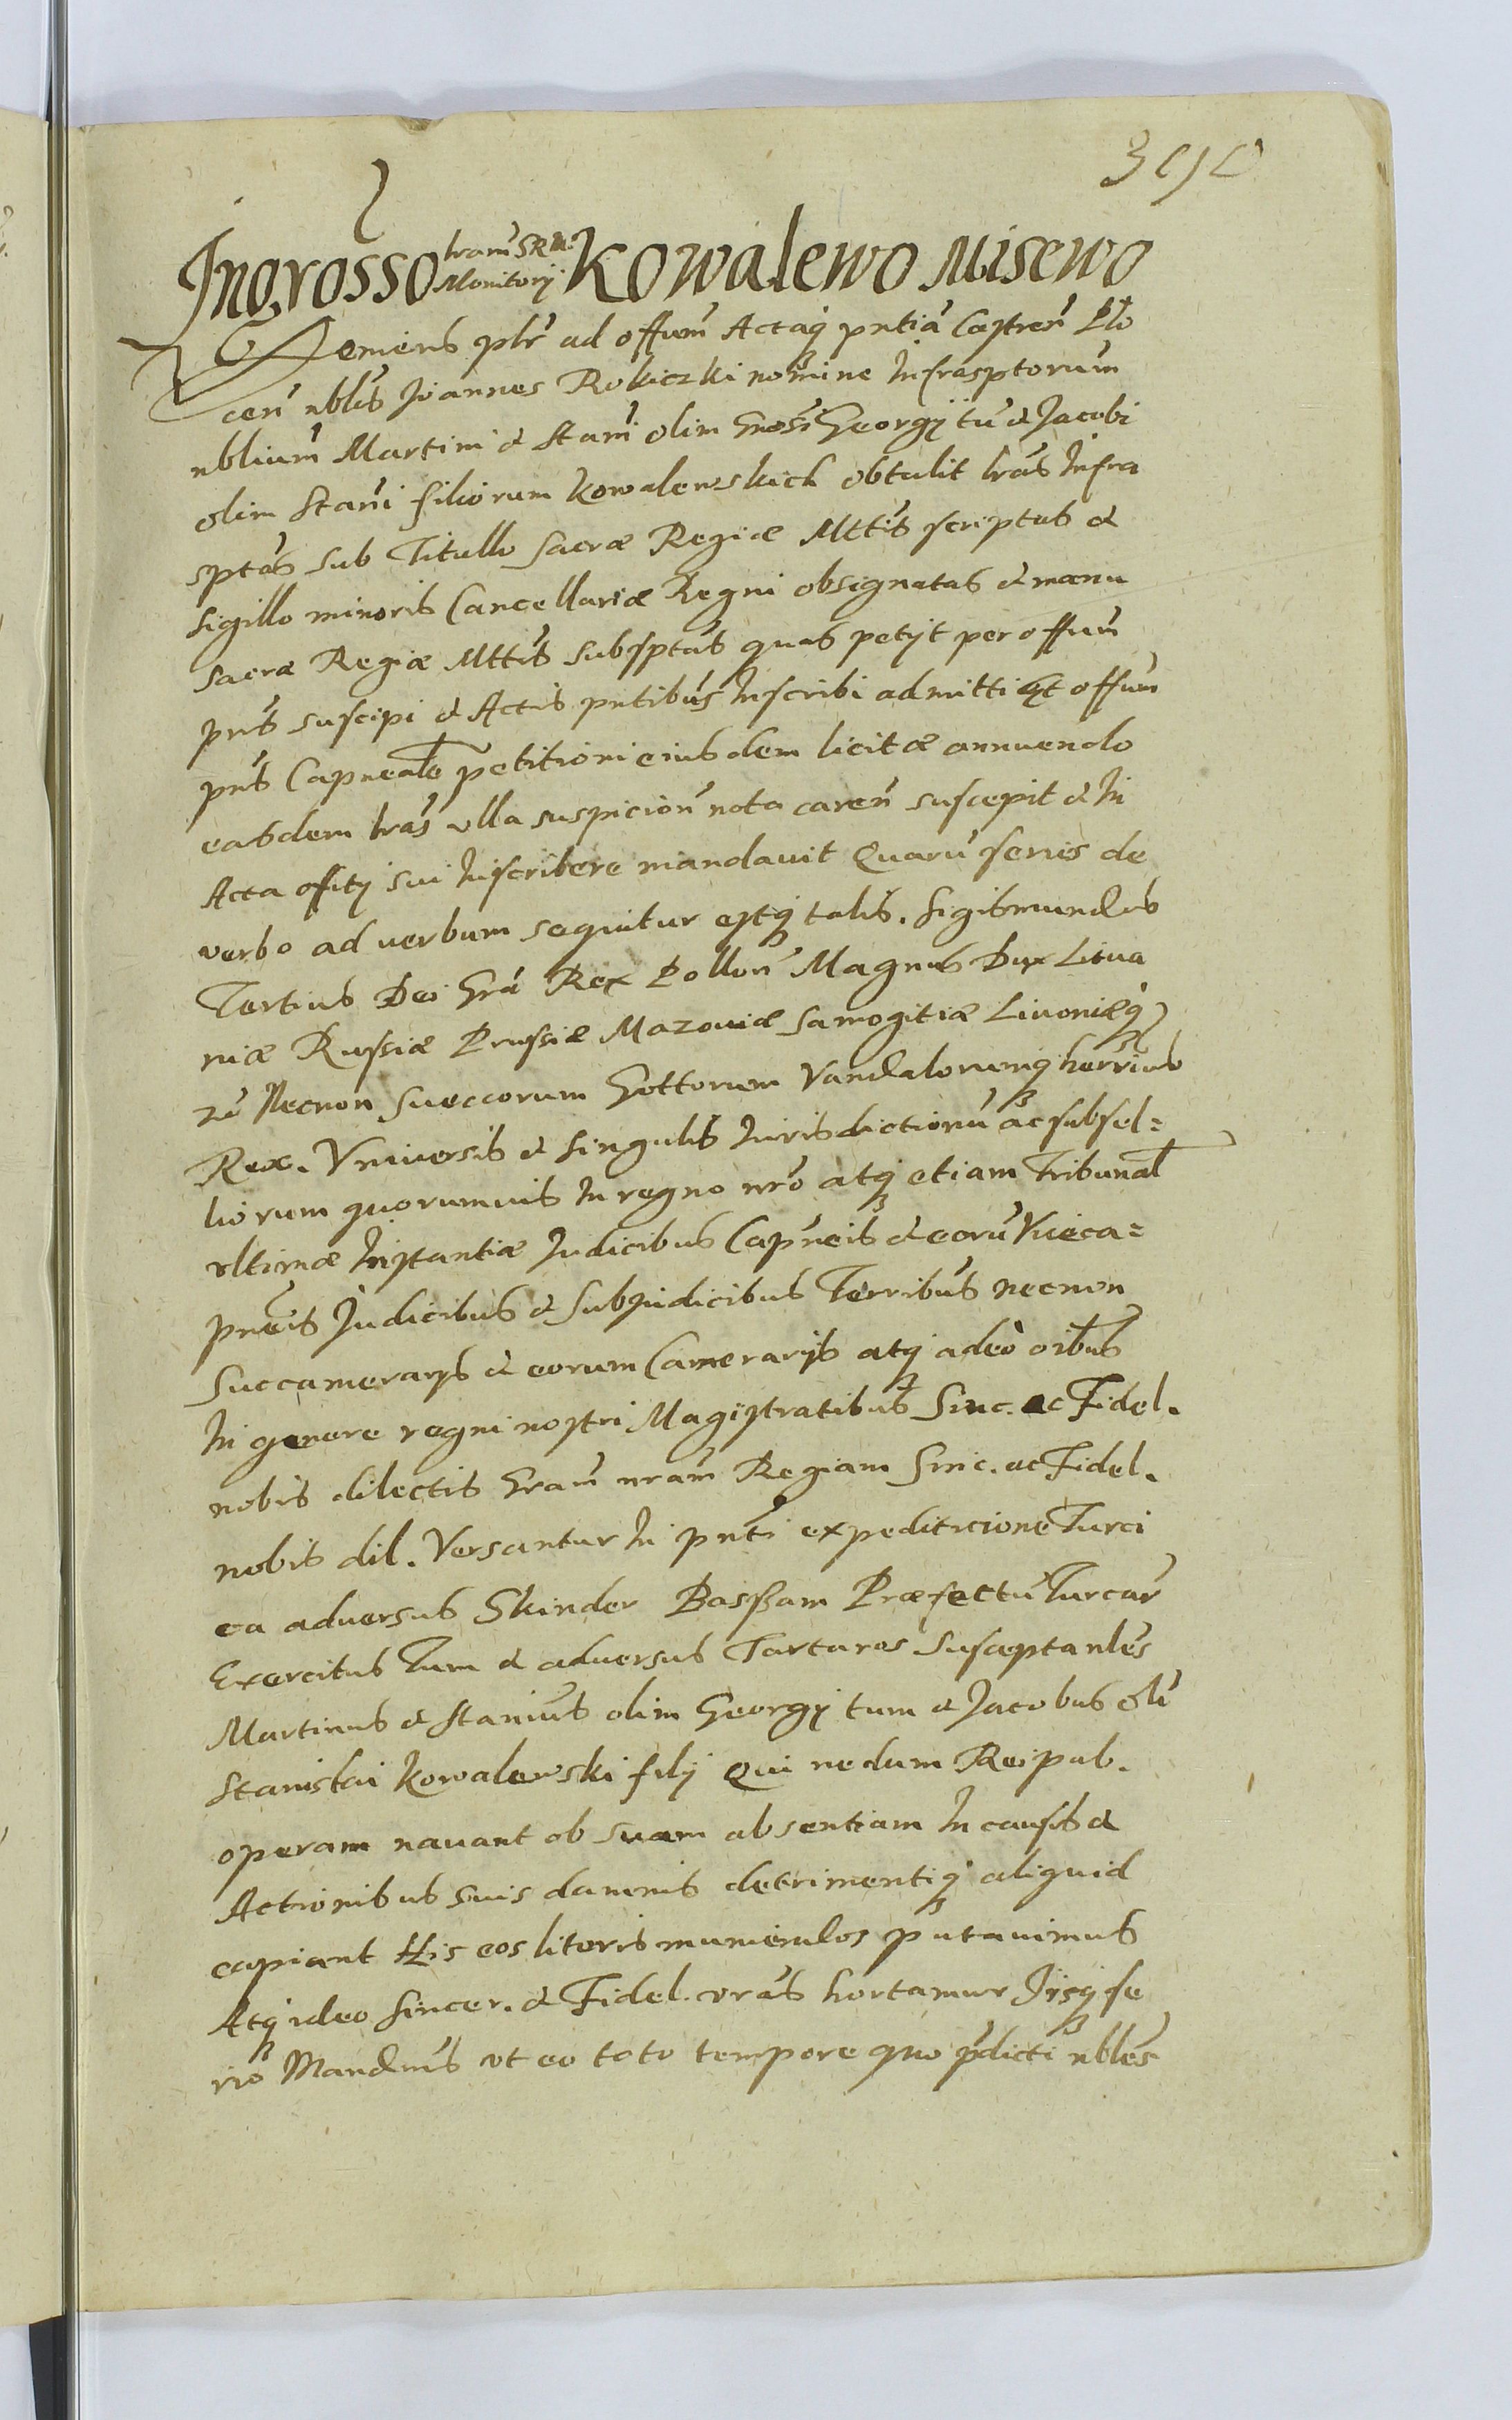 Ingrosso lrarum SRM Monitorÿ Kowalewo Misewo
Veniens plr ad offum Actaq pntia Castren Plo
cen nblis Joannes Rokiczki nomine Infrasptorum
nblium Martini et Stani olim Gnosi Georgij tu et Jacobi
olim Stani filiorum Kowalewskich obtulit lras Infra
sptas sub Titullo Sacræ Regiæ Mttis scriptas et
sigillo minoris Cancellariæ Regni obsignatas et manu
sacræ Regiæ Mttis subsptas quas petijt per offum
pns suscipi et Actis pntibus Inscribi admitti Et offum
pns Capneale petitioni eiusdem licitæ annuendo
easdem lras ulla suspicion nota caren suscepit et In
Acta offitj sui Inscribere mandavit Quaru series de
verbo ad verbum sequitur estq talis. Sigismundus
Tertius Dei Gra Rex Pollon Magnus Dux Litua
niæ Russiæ Prussiæ Mazoviæ Samogitiæ Livoniæq
Necnon Sueccorum Gottorum Vandalorumq hærrius
Rex. Vniversis et singulis Jurisdictionu ac subsel=
liorum quorumvis In regno nro atq etiam Tribunal
vltimæ Instantiæ Judicibus Capneis et eoru Viceca=
pneis Judicibus et Subjudicibus Terribus necnon
Succamerarijs et eorum Camerarijs atq adeo oibus
In genere regni nostri Magistratibus Sinc. ac Fidel.
nobis dilectis Gram nram Regiam Sinc. ac Fidel.
nobis dil. Versantur In pnti expeditione Turci
ca adversus Skinder Bassam Præfectu Turcar
Exercitus tum et adversus Tartaros suscepta nles
Martinus et Stanius olim Georgij tum et Jacobus oli
Stanislai Kowalewski filij Qui nedum Reipub.
operam navant ob suam absentiam In causis et
Actionibus suis damnis detrimentiq aliquid
capiant His eos literis muniendos putavimus
Atq ideo Sincer. et Fidel. vras hortamur Ijsq se
rio Mandmus vt eo toto tempore quo pdicti nbles